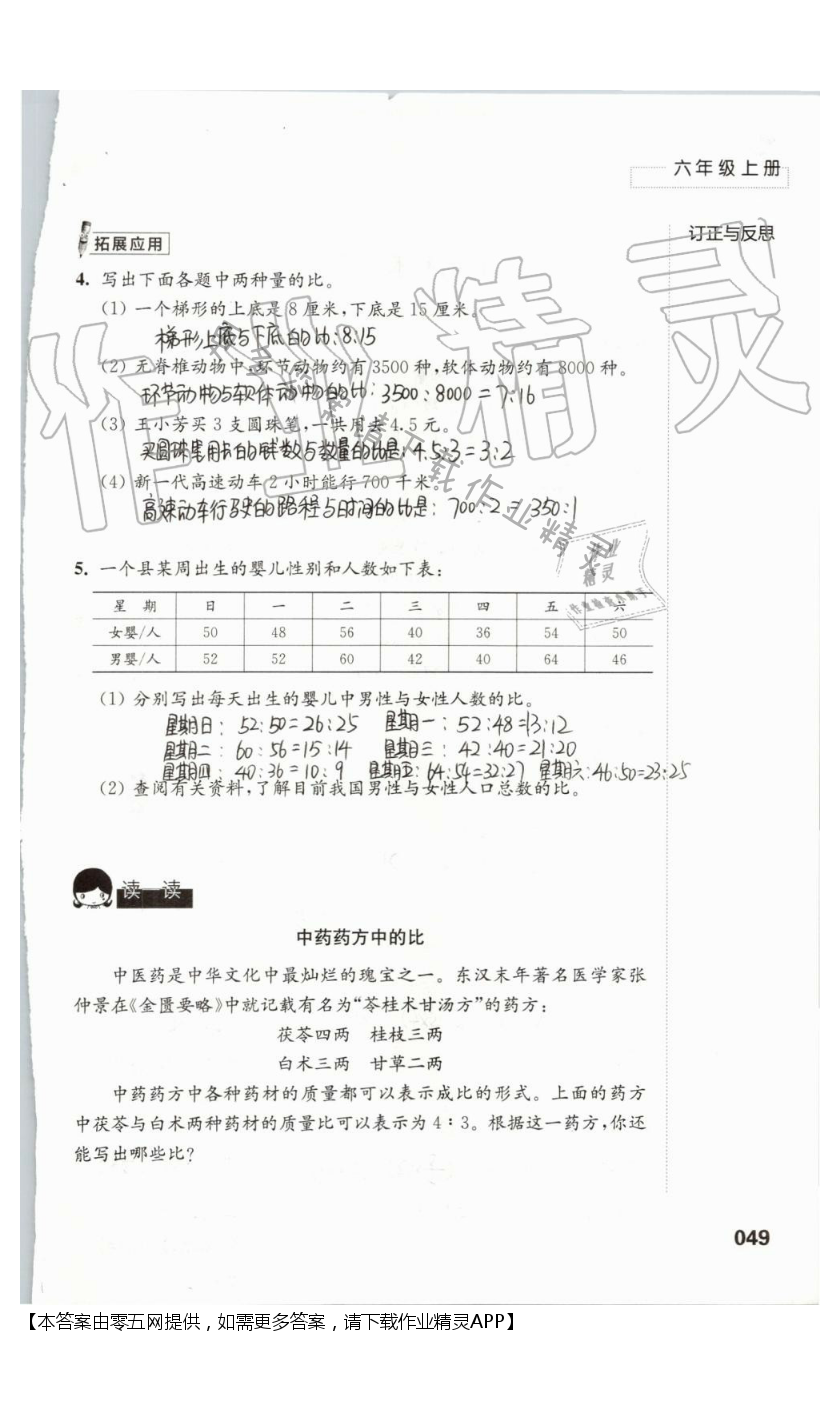 六年级上册
订正与反思
拓展应用
4. 写出下面各题中两种量的比。
(1) 一个梯形的上底是8厘米,下底是15厘米。
梯形上底与下底的比:8:15
(2) 无脊椎动物中,环节动物约有3500种,软体动物约有8000种。
环节动物与软体动物的比:3500:8000=7:16
(3) 王小芳买3支圆珠笔,一共用去4.5元。
买圆珠笔用去的钱数与数量的比是:4.5:3=3:2
(4) 新一代高速动车2小时能行700千米。
高速动车行驶的路程与时间的比是: 700:2=350:1
5. 一个县某周出生的婴儿性别和人数如下表:
星 期 日 一 二 三 四 五 六
女婴/人 50 48 56 40 36 54 50
男婴/人 52 52 60 42 40 64 46
(1) 分别写出每天出生的婴儿中男性与女性人数的比。
星期日: 52:50=26:25 星期一: 52:48=13:12
星期二: 60:56=15:14 星期三: 42:40=21:20
星期四: 40:36=10:9 星期五:64:54=32:27 星期六:46:50=23:25
(2) 查阅有关资料,了解目前我国男性与女性人口总数的比。
读一读
中药药方中的比
中医药是中华文化中最灿烂的瑰宝之一。东汉末年著名医学家张
仲景在《金匮要略》中就记载有名为“苓桂术甘汤方”的药方:
茯苓四两 桂枝三两
白术三两 甘草二两
中药药方中各种药材的质量都可以表示成比的形式。上面的药方
中茯苓与白术两种药材的质量比可以表示为4:3。根据这一药方,你还
能写出哪些比?
049
【本答案由零五网提供,如需更多答案,请下载作业精灵APP】
作业精灵